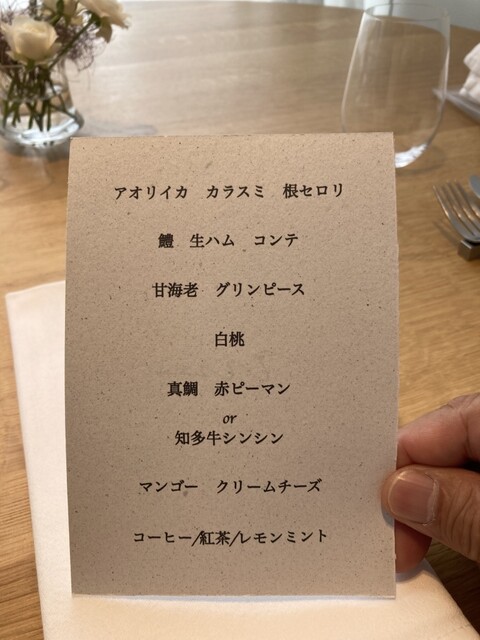 アオリイカ　カラスミ　根セロリ
鱧　生ハム　コンテ
甘海老　グリンピース
白桃
真鯛　赤ピーマン
or
知多牛シンシン
マンゴー　クリームチーズ
コーヒー/紅茶/レモンミント